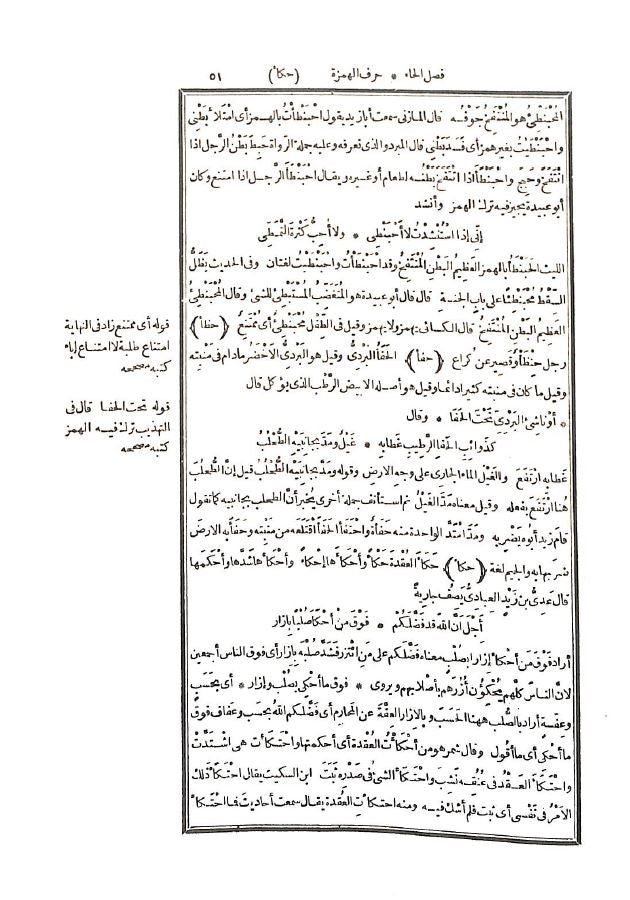 فصل الحاء * حرف الهمزة (حكأ) ٥١
المُحْبَنْطِئُ هو المُنْتَفِخُ جَوْفُه قال المازني سمعت أبا زيد يقول احْبَنْطَأْتُ بالهمز أى امْتَلَأَ بَطْنِى
واحْبَنْطَيْتُ بغير همز أى فَسَدَ بَطْنِى قال المبرد والذى نعرفه وعليه جملة الرُّواة حَبِطَ بَطْنُ الرَّجل اذا
انْتَفَخَ وحَبِجَ واحْبَنْطَأَ اذا انْتَفَخَ بَطْنُه لطعام أو غيره ويقال احْبَنْطَأَ الرَّجل اذا امتنع وكان
أبو عبيدة يجيز فيه ترك الهمز وأنشد
إِنِّى اذا اسْتُنْشِدْتُ لا أَحْبَنْطِى * ولا أُحِبُّ كَثْرةَ التَّمَطِّى
الليث الحَبَنْطَأُ بالهمز العظيم البَطْنِ المُنْتَفِخُ وقد احْبَنْطَأْتُ واحْبَنْطَيْتُ لغتان وفى الحديث يَظَلُّ
السِّقْطُ مُحْبَنْطِئًا على باب الجنة قال قال أبو عبيدة هو المُتَغَضِّبُ المُسْتَبْطِئُ للشئ وقال المُحْبَنْطِئُ
العَظِيمُ البَطْنِ المُنْتَفِخُ قال الكسائى يهمز ولا يهمز وقيل فى الطِّفْل مُحْبَنْطِئٌ أى مُمْتَنِعٌ (حنطأ)
رجل حِنْطَأْوٌ قصير عن كراع (حفأ) الحَفَأُ البَرْدِىُّ وقيل هو البَرْدِىُّ الاخْضَرُ مادام فى مَنْبِته
وقيل ما كان فى منبته كثيرا دائما وقيل هو أصله الابيض الرَّطب الذى يؤكل قال
* أو ناشِئ البَرْدِىّ تَحْتَ الحَفَا * وقال
كَذَوائِبِ الحَفَإ الرَّطِيبِ غَطَا به * غَيْلٌ ومَدَّ بجانِبَيْه الطُّحْلُبُ
غَطَا به ارْتَفَعَ والغَيْل الماءُ الجارى على وجه الارض وقوله ومَدَّ بجانِبَيْه الطُّحْلُب قيل إنَّ الطُّحلُبَ
هُنا ارْتَفَعَ بفعله وقيل معناه مَدَّ الغَيْلُ ثم استأنف جملة أخرى يُخْبِر أنَّ الطحلب بجانبيه كما تقول
قامَ زيد أبوه يَضْرِبه ومَدَّ امْتَدَّ الواحدة منه حَفَأَةٌ واحْتَفَأَ الحَفَأَ اقْتَلَعَه من مَنْبِتِه وحَفَأَ به الارضَ
ضربَها به والجيم لغة (حكأ) حَكَأَ العُقْدة حَكْأً وأَحْكَأَها إحْكاءً وأَحْكَأَها شَدَّها وأَحْكَمَها
قال عَدِىُّ بن زَيْد العِبادىُّ يَصفُ جاريةً
أَجْلَ أَنَّ اللهَ قد فَضَّلَكُمْ * فَوْقَ مَنْ أَحْكَأَ صُلْبًا بازار
أراد فَوْقَ مَن أَحْكَأَ إزارا بصُلْب معناه فَضَّلَكم على مَن ائْتزر فَشَدَّ صُلْبَه بازار أى فوق الناس أجمعين
لانَّ الناسَ كلَّهم يُحْكِئُون أُزُرَهم بأصلابهم ويروى * فوق ما أَحْكِى بصُلْبٍ وإزار * أى بحَسَبٍ
وعِفَّةٍ أراد بالصُّلب ههنا الحَسَبَ وبالازار العِفَّةَ عن المَحارِم أى فَضَّلكم اللهُ بحَسب وعَفاف فَوْقَ
ما أَحْكِى أى ما أقول وقال شمر هو من أَحْكَأْتُ العُقْدة أى أحكمتها واحْتَكَأَتْ هى اشْتَدَّتْ
واحْتَكَأَ العَقْدُ فى عُنُقِه نَشِبَ واحْتَكَأَ الشئُ فى صَدْره ثَبَتَ ابن السكيت يقال احْتَكَأَ ذلك
الامْرُ فى نَفْسى أى ثبت فلم أشك فيه ومنه احتكأت العُقدة يقال سمعت أحاديثَ فما احْتَكَأَ
قوله أى ممتنع زاد فى النهاية
امتناع طلبة لا امتناع إباء
كتبه مصححه
قوله تحت الحفا قال فى
التهذيب ترك فيه الهمز
كتبه مصححه